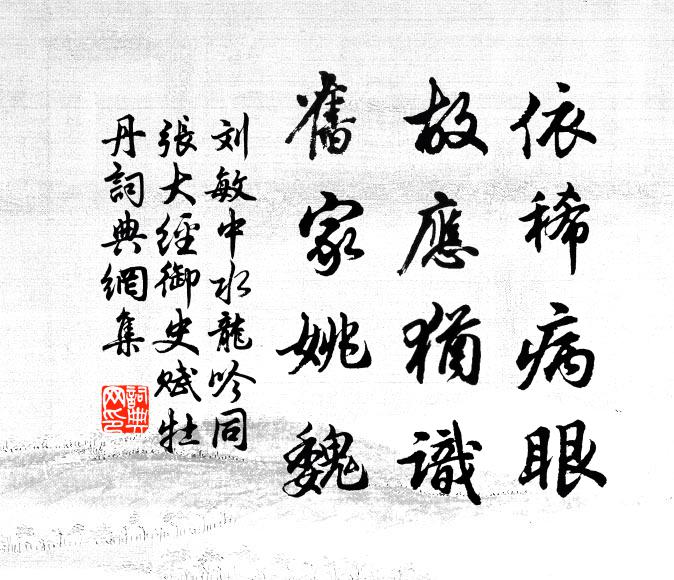 依稀病眼
故應猶識
舊家姚魏
刘敏中水龍吟同
張大經御史賦牡
丹詞典網集
詞典網印